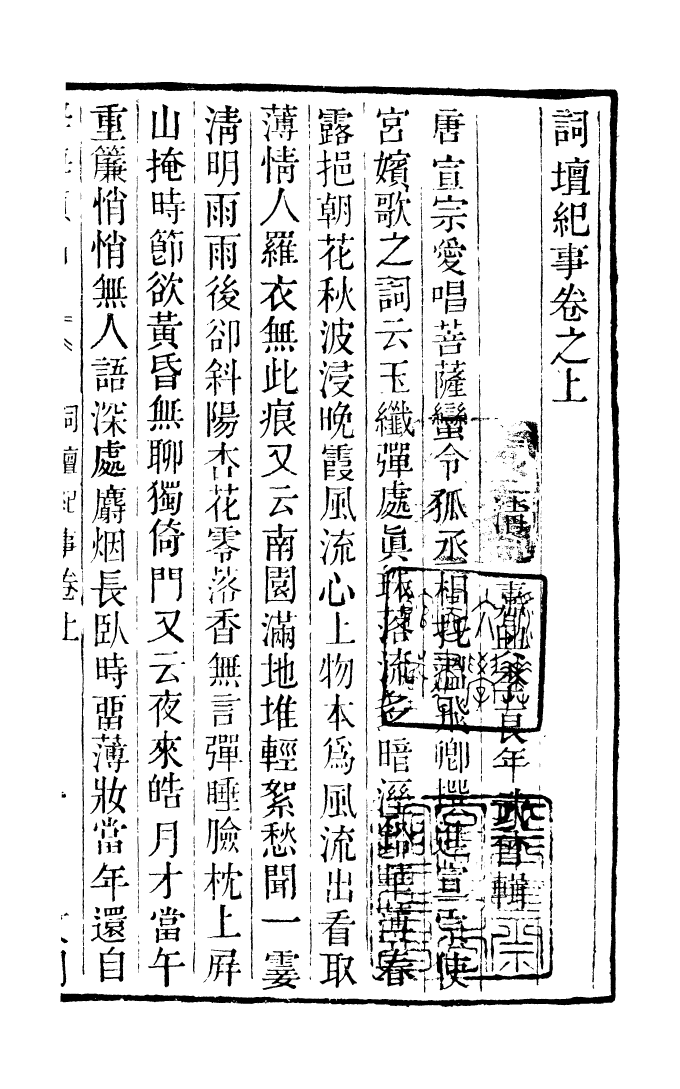 詞壇紀事卷之上
李良年武曾輯
唐宣宗愛唱菩薩蠻令狐丞相托溫飛卿撰進宣宗使
宮嬪歌之詞云玉纖彈處眞珠落流多暗溼鉛華薄春
露挹朝花秋波浸晚霞風流心上物本爲風流出看取
薄情人羅衣無此痕又云南園滿地堆輕絮愁聞一霎
淸明雨雨後卻斜陽杏花零落香無言彈睡臉枕上屛
山掩時節欲黃昏無聊獨倚門又云夜來皓月才當午
重簾悄悄無人語深處麝烟長臥時畱薄妝當年還自
詞壇紀事卷上